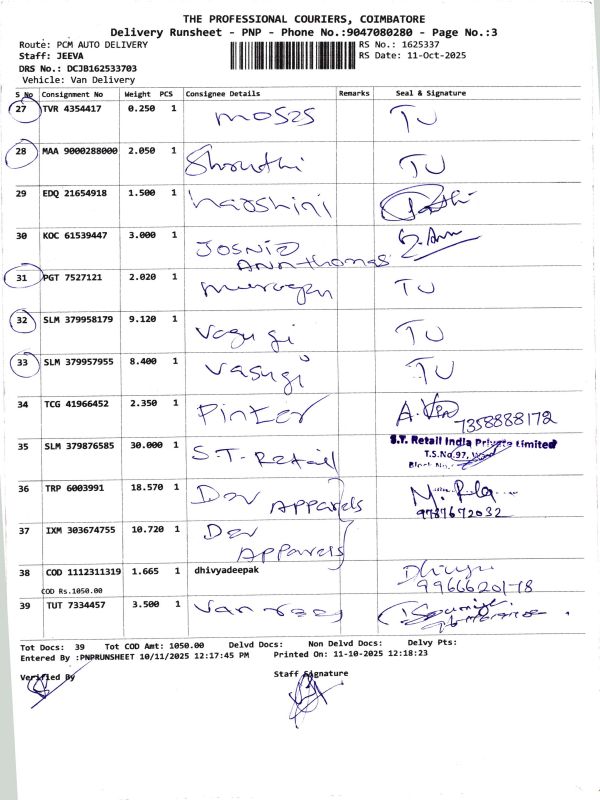 THE PROFESSIONAL COURIERS, COIMBATORE
Delivery Runsheet - PNP - Phone No.:9047080280 - Page No.:3
Route: PCM AUTO DELIVERY
RS No.: 1625337
Staff: JEEVA
RS Date: 11-Oct-2025
DRS No.: DCJB162533703
Vehicle: Van Delivery
S No Consignment No Weight PCS Consignee Details Remarks Seal & Signature
27 TVR 4354417 0.250 1 TU
28 MAA 9000288000 2.050 1 Shruthi TU
29 EDQ 21654918 1.500 1 haoshini
30 KOC 61539447 3.000 1 JOSNIA
ANN thomas
31 PGT 7527121 2.020 1 murugan TU
32 SLM 379958179 9.120 1 Vasugi TU
33 SLM 379957955 8.400 1 Vasugi TU
34 TCG 41966452 2.350 1 Pinter 7358888172
35 SLM 379876585 30.000 1 S.T. Retail S.T. Retail India Private Limited
T.S.No.97,
Block No.
36 TRP 6003991 18.570 1 Dev Apparels
9787672032
37 IXM 303674755 10.720 1 Dev
Apparels
38 COD 1112311319 1.665 1 dhivyadeepak Dhivya
COD Rs.1050.00 99666201-18
39 TUT 7334457 3.500 1
Tot Docs: 39 Tot COD Amt: 1050.00 Delvd Docs: Non Delvd Docs: Delvy Pts:
Entered By :PNPRUNSHEET 10/11/2025 12:17:45 PM Printed On: 11-10-2025 12:18:23
Verified By Staff Signature